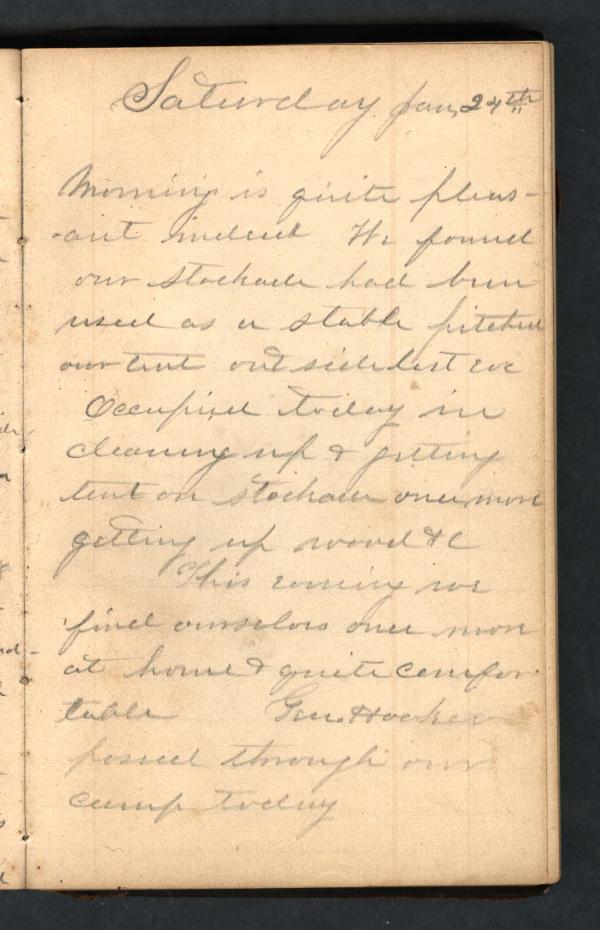 Saturday Jan, 24th
Morning is quite pleas-
-ant indeed We found
our stockade had been
used as a stable pitched
our tent outside last eve
Occupied today in
cleaning up & getting
tent on stockade once more
getting up wood &c
This evening we
find ourselves once more
at home & quite comfor-
table Gen. Hooker
passed through our
camp today